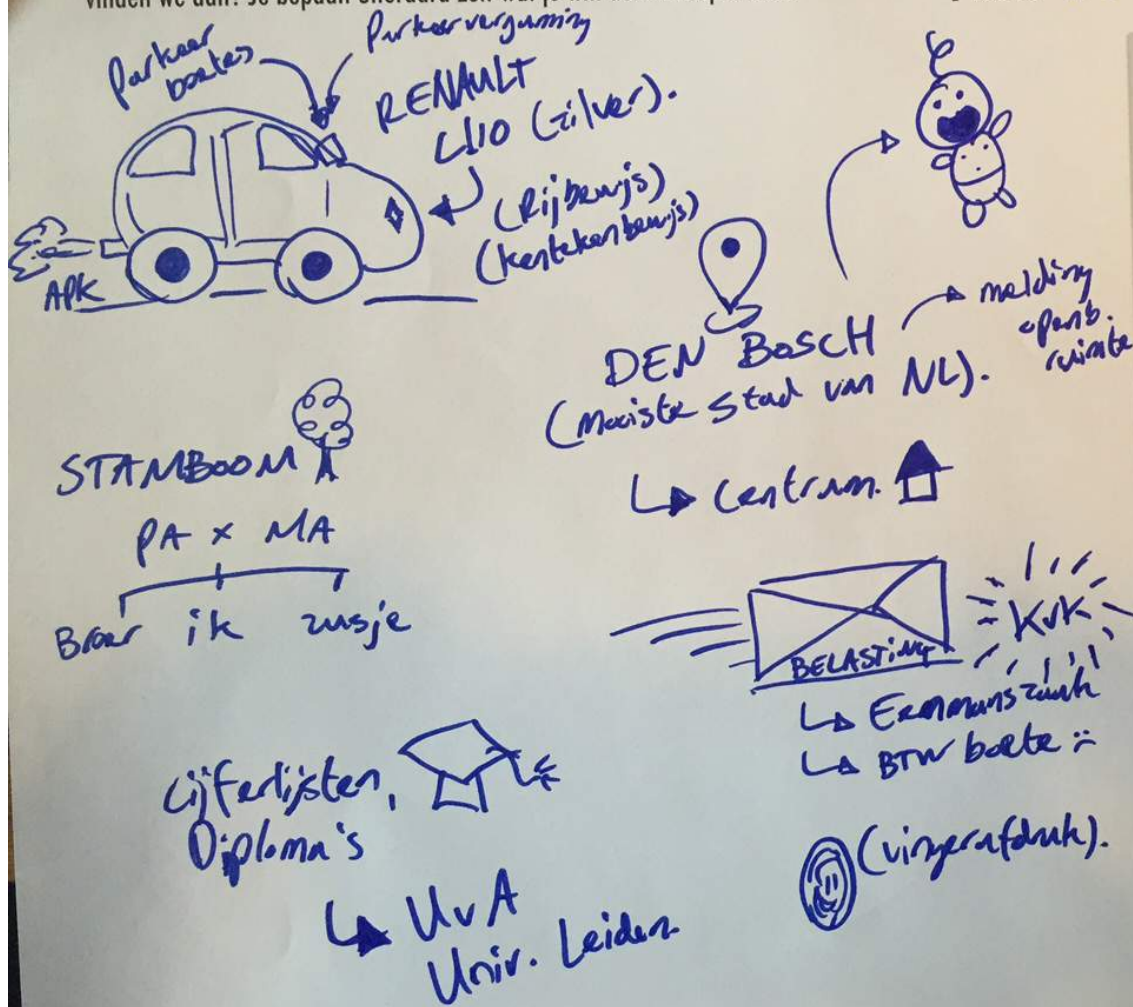 Parkeer
boetes
Parkeervergunning
RENAULT
CLIO (zilver).
(Rijbewijs)
(kentekenbewijs)
APK
DEN BOSCH
(Mooiste stad van NL).
melding
openb.
ruimte
↳ Centrum.
STAMBOOM
PA x MA
Broer ik zusje
BELASTING
KvK
↳ Eenmanszaak
↳ BTW boete :(
Cijferlijsten,
Diploma's
↳ UvA
Univ. Leiden
(vingerafdruk).